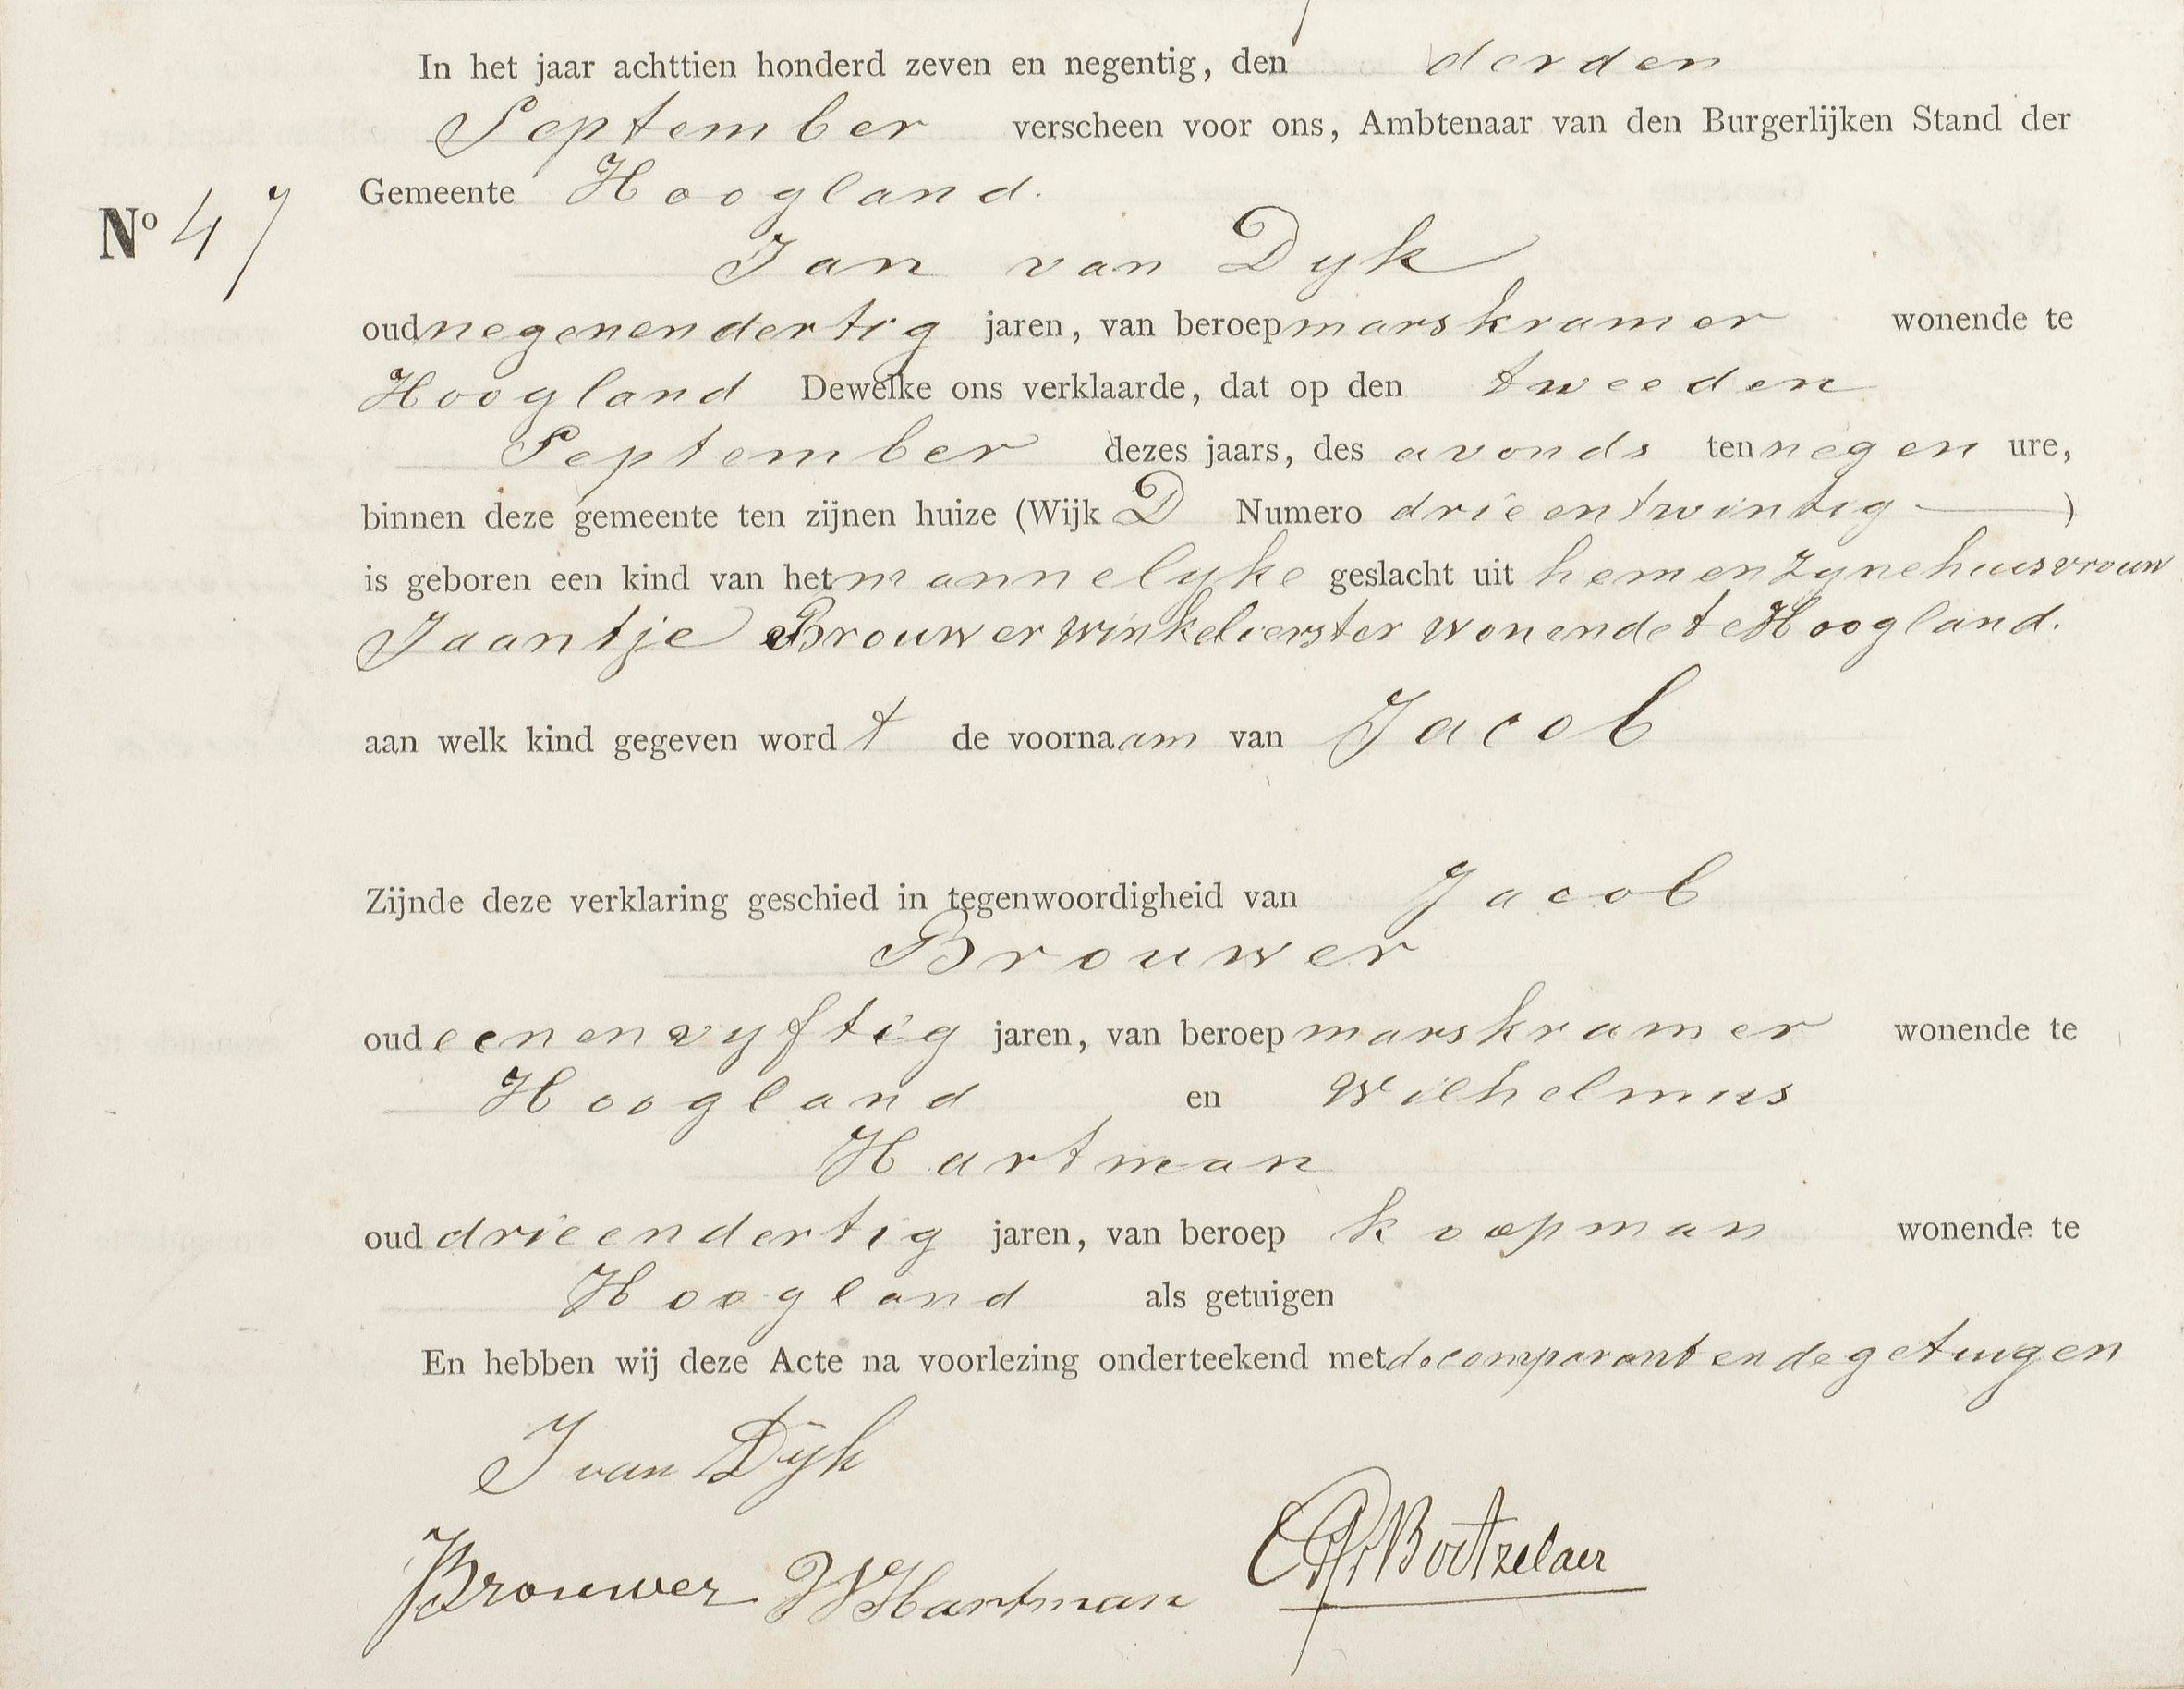 In het jaar achttien honderd zeven en negentig, den derden
September verscheen voor ons, Ambtenaar van den Burgerlijken Stand der
Gemeente Hoogland.
Nº 47
Jan van Dyk
oud negenendertig jaren, van beroep marskramer wonende te
Hoogland Dewelke ons verklaarde, dat op den tweeden
September dezes jaars, des avonds ten negen ure,
binnen deze gemeente ten zijnen huize (Wijk D Numero drieentwintig )
is geboren een kind van het mannelyke geslacht uit hem en zyne huisvrouw
Jaantje Brouwer winkelierster wonende te Hoogland.
aan welk kind gegeven wordt de voornaam van Jacob
Zijnde deze verklaring geschied in tegenwoordigheid van Jacob
Brouwer
oud eenenvyftig jaren, van beroep marskramer wonende te
Hoogland en Wilhelmus
Hartman
oud drieendertig jaren, van beroep koopman wonende te
Hoogland als getuigen
En hebben wij deze Acte na voorlezing onderteekend met de comparant en de getuigen
J van Dÿk
JBrouwer WHartman Boetzelaer